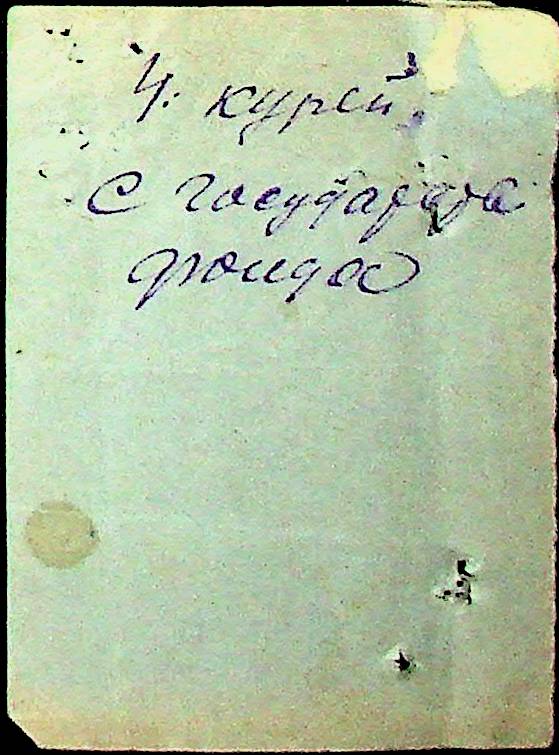 4. курей
с государств
фонда